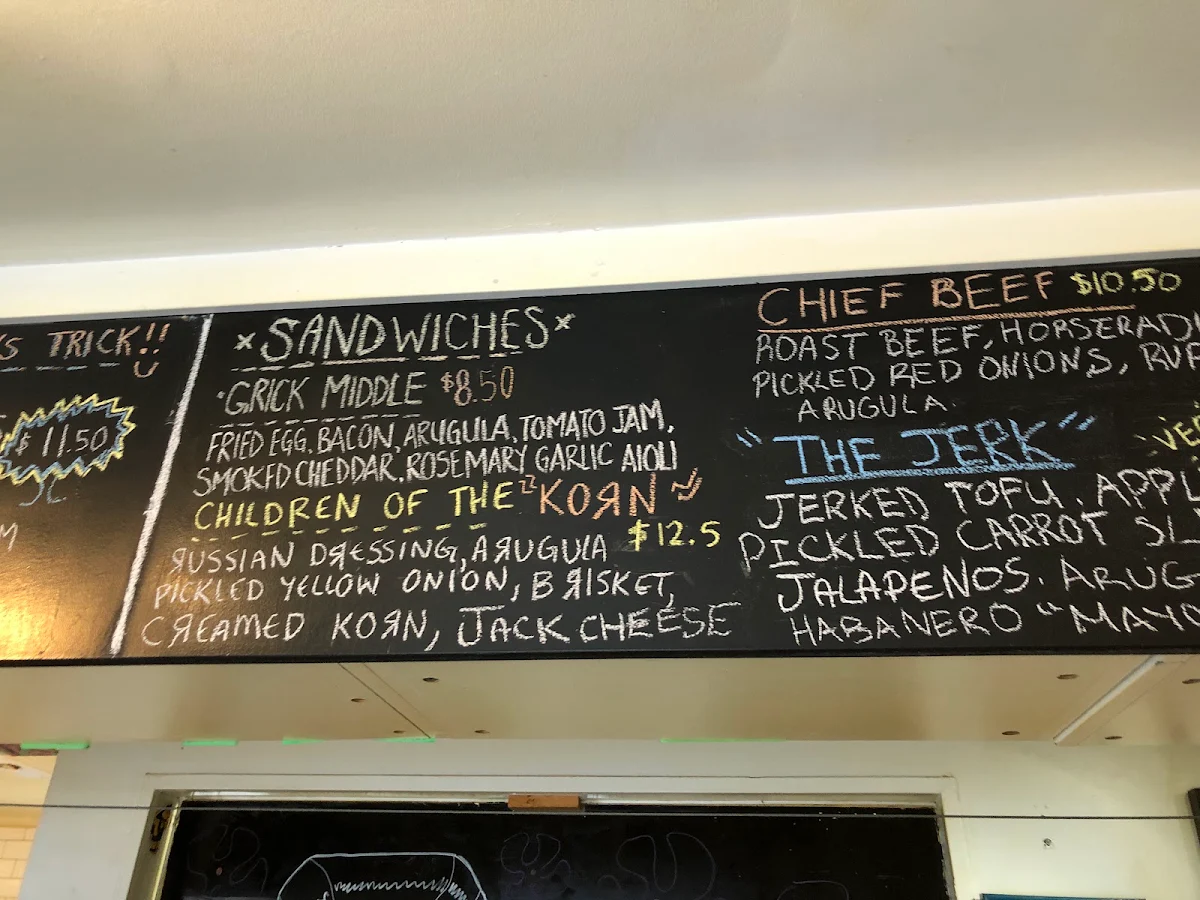 TRICK!!
$11.50
*SANDWICHES*
·GRICK MIDDLE $8.50
FRIED EGG, BACON, ARUGULA, TOMATO JAM,
SMOKED CHEDDAR, ROSEMARY GARLIC AIOLI
CHILDREN OF THE "KOЯN"
$12.5
ЯUSSIAN DЯESSING, AЯUGULA
PICKLED YELLOW ONION, BЯISKET,
CЯEAMED KOЯN, JACK CHEESE
CHIEF BEEF $10.50
ROAST BEEF, HORSERADI
PICKLED RED ONIONS,
ARUGULA
"THE JERK"
JERKED TOFU, APPL
PICKLED CARROT SL
JALAPENOS. ARUG
HABANERO "MAYO